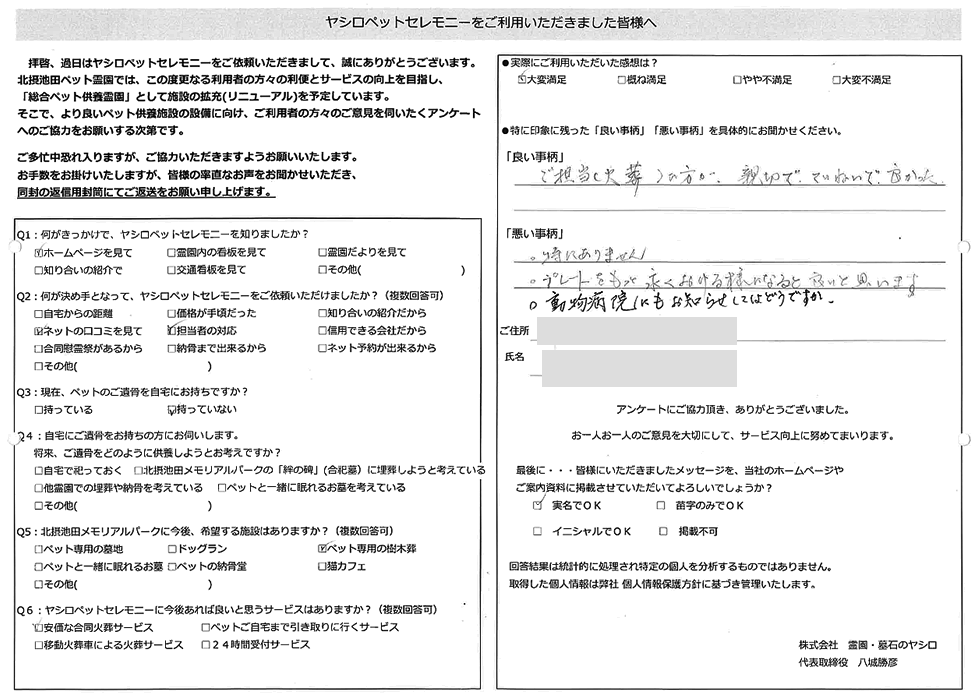 ヤシロペットセレモニーをご利用いただきました皆様へ
拝啓、過日はヤシロペットセレモニーをご依頼いただきまして、誠にありがとうございます。
北摂池田ペット霊園では、この度更なる利用者の方々の利便とサービスの向上を目指し、
「総合ペット供養霊園」として施設の拡充(リニューアル)を予定しています。
そこで、より良いペット供養施設の設備に向け、ご利用者の方々のご意見を伺いたくアンケート
へのご協力をお願いする次第です。
ご多忙中恐れ入りますが、ご協力いただきますようお願いいたします。
お手数をお掛けいたしますが、皆様の率直なお声をお聞かせいただき、
同封の返信用封筒にてご返送をお願い申し上げます。
Q1：何がきっかけで、ヤシロペットセレモニーを知りましたか？
☑ホームページを見て □霊園内の看板を見て □霊園だよりを見て
□知り合いの紹介で □交通看板を見て □その他( )
Q2：何が決め手となって、ヤシロペットセレモニーをご依頼いただけましたか？（複数回答可）
□自宅からの距離 □価格が手頃だった □知り合いの紹介だから
☑ネットの口コミを見て ☑担当者の対応 □信用できる会社だから
□合同慰霊祭があるから □納骨まで出来るから □ネット予約が出来るから
□その他( )
Q3：現在、ペットのご遺骨を自宅にお持ちですか？
□持っている ☑持っていない
Q4：自宅にご遺骨をお持ちの方にお伺いします。
将来、ご遺骨をどのように供養しようとお考えですか？
□自宅で祀っておく □北摂池田メモリアルパークの「絆の碑」(合祀墓）に埋葬しようと考えている
□他霊園での埋葬や納骨を考えている □ペットと一緒に眠れるお墓を考えている
□その他( )
Q5：北摂池田メモリアルパークに今後、希望する施設はありますか？（複数回答可）
□ペット専用の墓地 □ドッグラン ☑ペット専用の樹木葬
□ペットと一緒に眠れるお墓 □ペットの納骨堂 □猫カフェ
□その他( )
Q6：ヤシロペットセレモニーに今後あれば良いと思うサービスはありますか？（複数回答可）
☑安価な合同火葬サービス □ペットご自宅まで引き取りに行くサービス
□移動火葬車による火葬サービス □２４時間受付サービス
●実際にご利用いただいた感想は？
☑大変満足 □概ね満足 □やや不満足 □大変不満足
●特に印象に残った「良い事柄」「悪い事柄」を具体的にお聞かせください。
「良い事柄」
ご担当(火葬)の方が、親切で、ていねいで、良かった
「悪い事柄」
。特にありません
。プレートをもっと永くおける様になると良いと思います
。動物病院にもお知らせしてはどうですか。
ご住所
氏名
アンケートにご協力頂き、ありがとうございました。
お一人お一人のご意見を大切にして、サービス向上に努めてまいります。
最後に・・・皆様にいただきましたメッセージを、当社のホームページや
ご案内資料に掲載させていただいてよろしいでしょうか？
☑ 実名でＯＫ □ 苗字のみでＯＫ
□ イニシャルでＯＫ □ 掲載不可
回答結果は統計的に処理され特定の個人を分析するものではありません。
取得した個人情報は弊社 個人情報保護方針に基づき管理いたします。
株式会社 霊園・墓石のヤシロ
代表取締役 八城勝彦